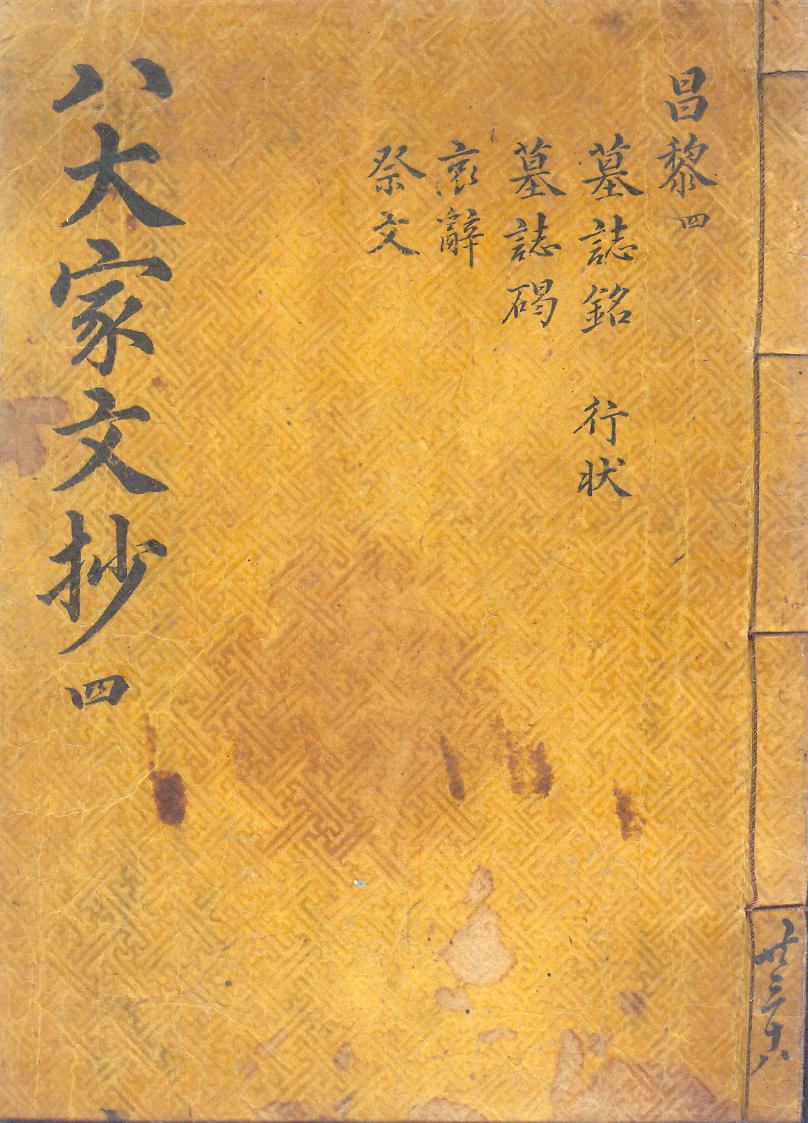 共三十八
昌黎 四
墓誌銘 行状
墓誌碣
哀辭
祭文
八大家文抄 四